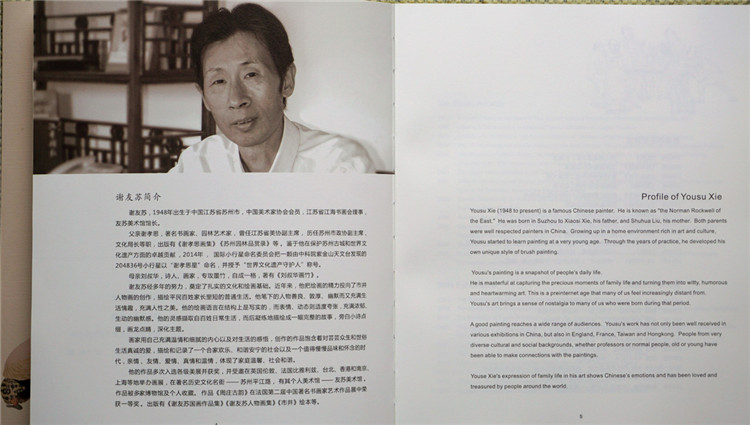 谢友苏简介
谢友苏，1948年出生于中国江苏省苏州市，中国美术家协会会员，江苏省江海书画会理事，
友苏美术馆馆长。
父亲谢孝思，著名书画家、园林艺术家，曾任江苏省美协副主席，历任苏州市政协副主席、
文化局长等职，出版有《谢孝思画集》《苏州园林品赏录》等，鉴于他在保护苏州古城和世界文
化遗产方面的卓越贡献，2014年，国际小行星命名委员会把一颗由中科院紫金山天文台发现的
204836号小行星以“谢孝思星”命名，并授予“世界文化遗产守护人”称号。
母亲刘叔华，诗人、画家，专攻墨竹，自成一格，著有《刘叔华画竹》。
谢友苏经多年的努力，奠定了扎实的文化和绘画基础。近年来，他把绘画的精力投向了市井
人物画的创作，描绘平民百姓家长里短的普通生活。他笔下的人物善良、敦厚、幽默而又充满生
活情趣，充满人性之美。他的绘画语言在结构上是写实的，而表情、动态则适度夸张，充满诙谐、
生动的幽默感。他的灵感撷取自百姓日常生活，而后凝练地描绘成一幅完整的故事，旁白小诗点
缀，画龙点睛，深化主题。
画家用自己充满温情和细腻的内心以及对生活的感悟，创作的作品饱含着对芸芸众生和世俗
生活真诚的爱，描绘和记录了一个合家欢乐、和谐安宁的社会以及一个值得慢慢品味和怀念的时
代，亲情、友情、爱情、真情和温情，体现了家庭温馨、社会和谐。
他的作品多次入选各级美展并获奖，并受邀在英国伦敦、法国比雅利兹、台北、香港和南京、
上海等地举办画展，在著名历史文化名街——苏州平江路，有其个人美术馆——友苏美术馆。
作品被多家博物馆及个人收藏。作品《周庄古韵》在法国第二届中国书画家艺术作品展中荣
获一等奖。出版有《谢友苏国画作品集》《谢友苏人物画集》《市井》绘本等。
Profile of Yousu Xie
Yousu Xie (1948 to present) is a famous Chinese painter. He is known as "the Norman Rockwell of
the East." He was born in Suzhou to Xiaosi Xie, his father, and Shuhua Liu, his mother. Both parents
were well respected painters in China. Growing up in a home environment rich in art and culture,
Yousu started to learn painting at a very young age. Through the years of practice, he developed his
own unique style of brush painting.
Yousu's painting is a snapshot of people's daily life.
He is masterful at capturing the precious moments of family life and turning them into witty, humorous
and heartwarming art. This is a preinternet age that many of us feel increasingly distant from.
Yousu's art brings a sense of nostalgia to many of us who were born during that period.
A good painting reaches a wide range of audiences. Yousu's work has not only been well received in
various exhibitions in China, but also in England, France, Taiwan and Hongkong. People from very
diverse cultural and social backgrounds, whether professors or normal people, old or young have
been able to make connections with the paintings.
Youse Xie's expression of family life in his art shows Chinese's emotions and has been loved and
treasured by people around the world.
5